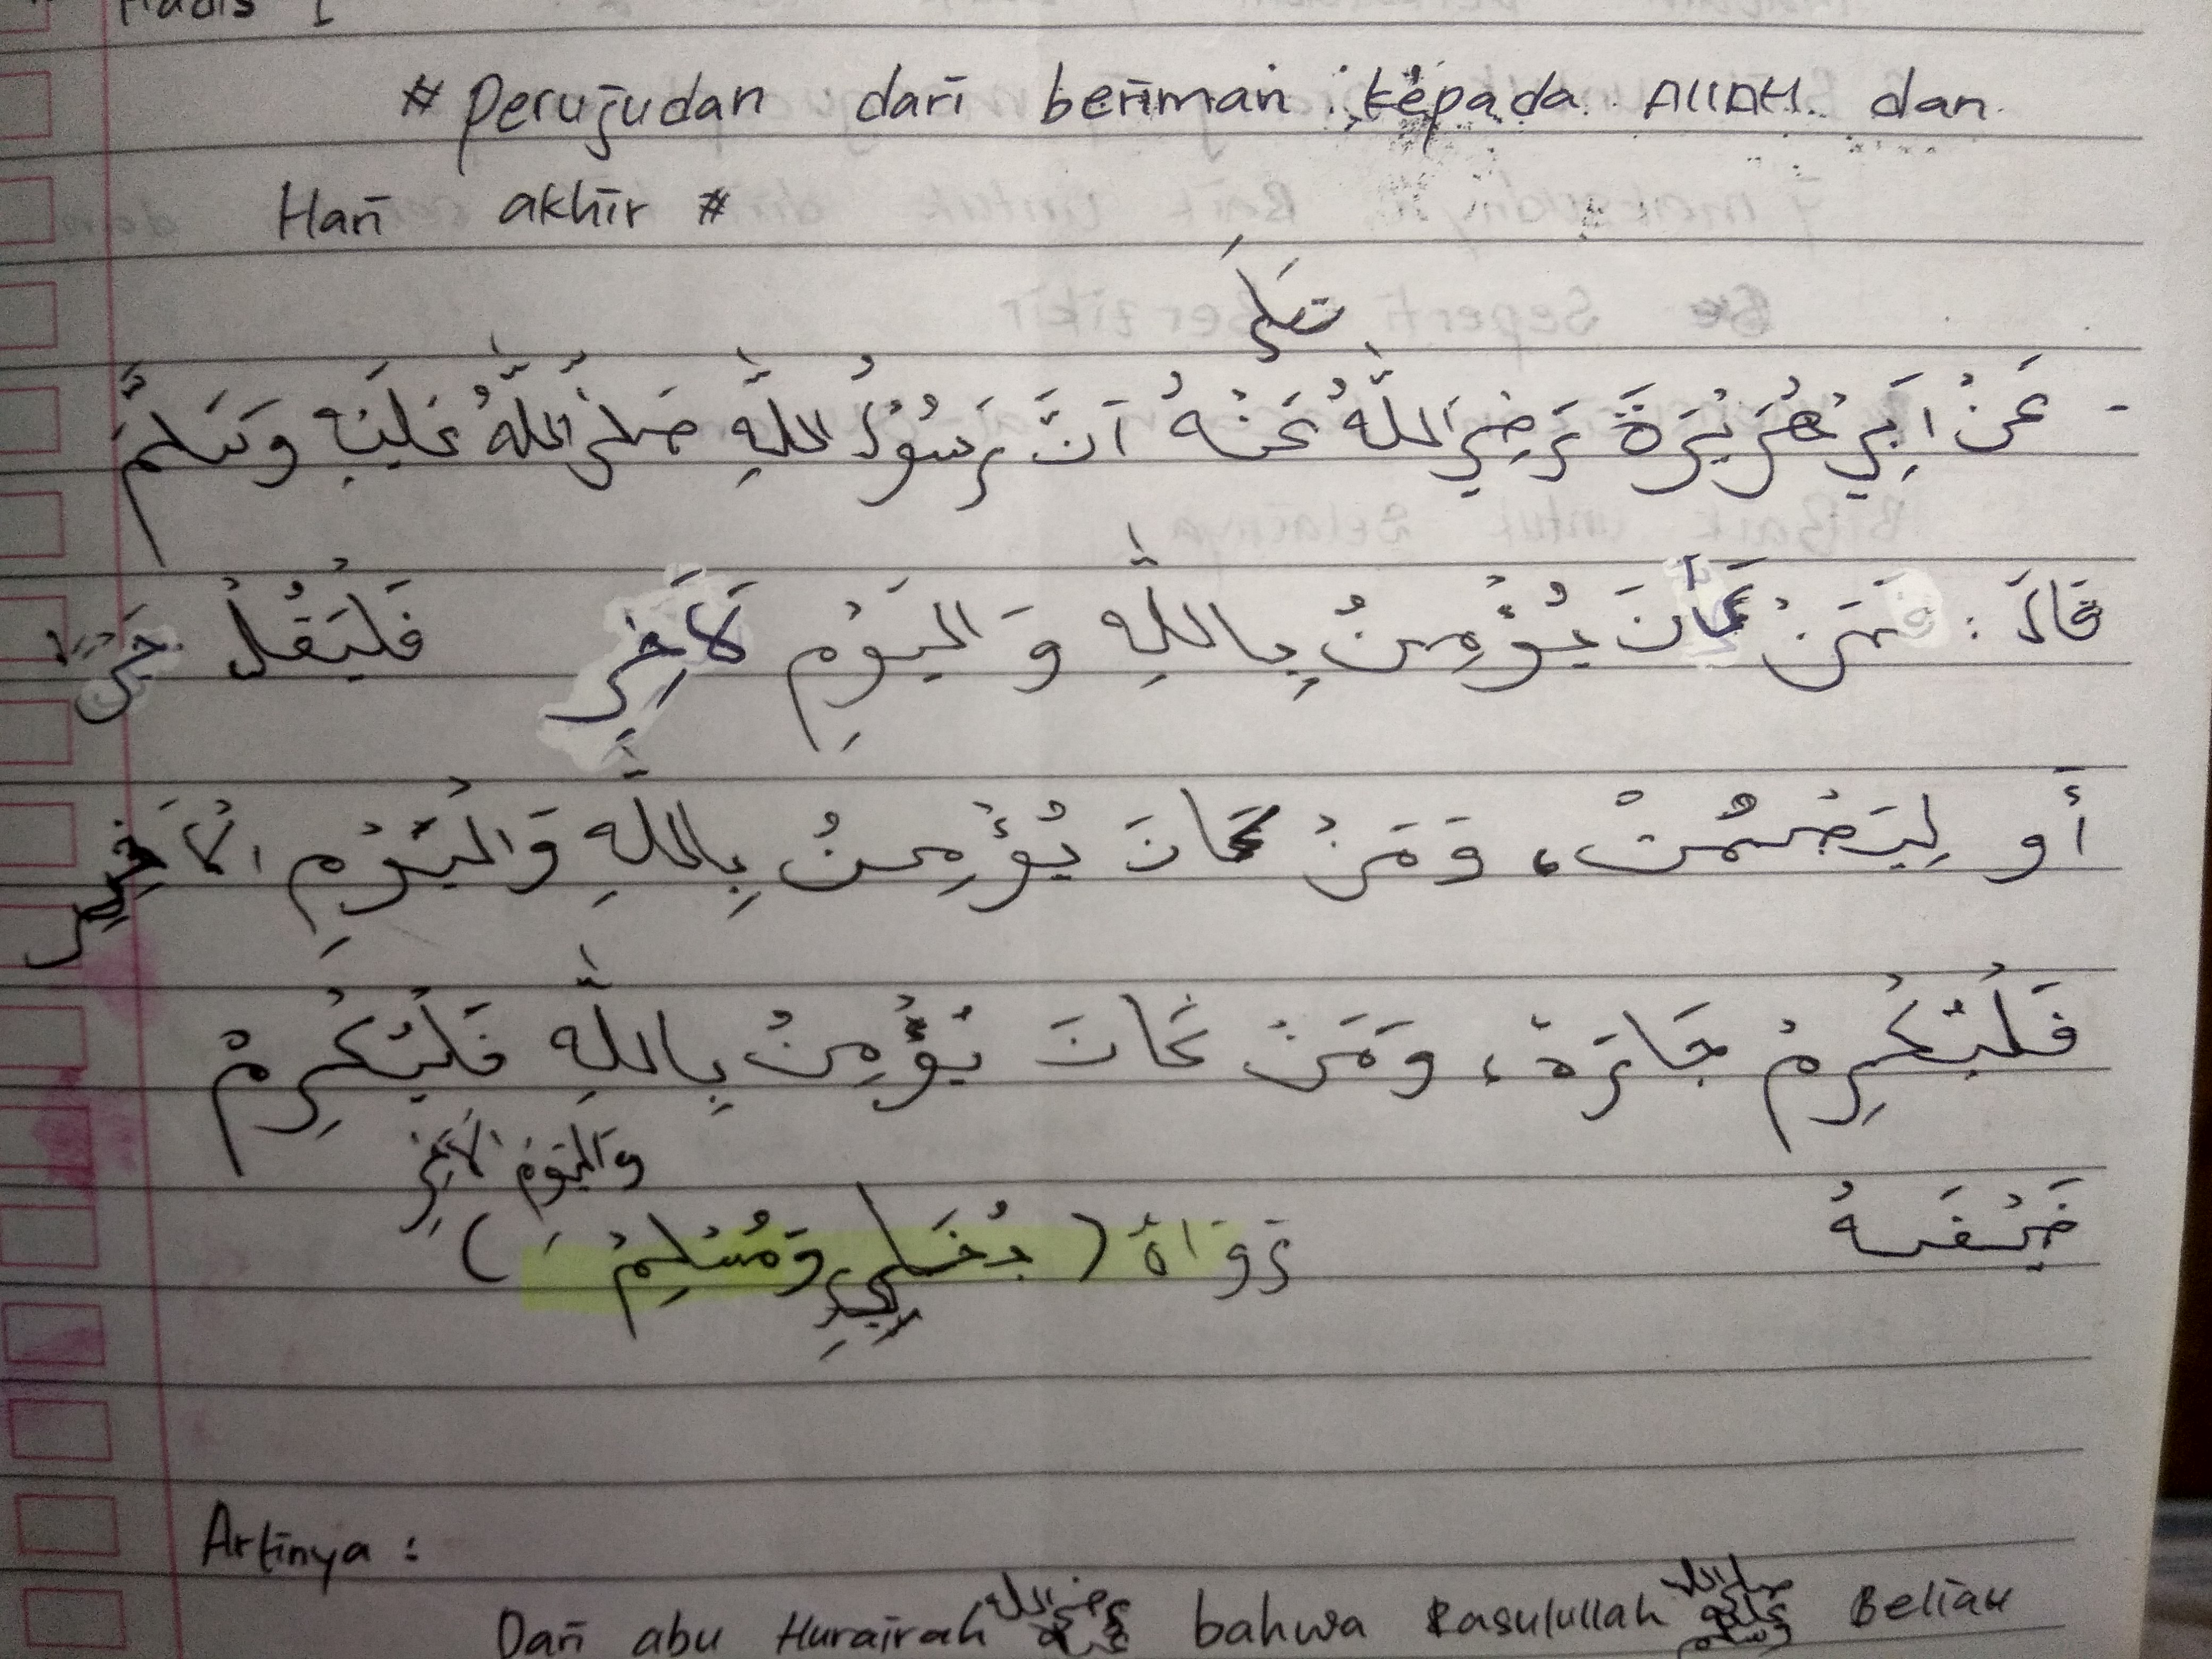 Hadis 1
# Perujudan dari beriman kepada ALLAH dan
Hari akhir #
- عَنْ اَبِيْ هُرَيْرَةَ رَضِيَ اللّٰهُ عَنْهُ اَنَّ رَسُوْلُ اللّٰهِ صَلَّى اللّٰهُ عَلَيْهِ وَسَلَّمَ
قَالَ : فَمَنْ كَأنَ يُؤْمِنُ بِاللّٰهِ وَاليَوْمِ لَاَخِرِ فَليَقُلْ
أَو لِيَصْمُتْ، وَمَنْ كَانَ يُؤْمِنُ بِاللّٰهِ وَاليَوْمِ الْاَخِرِ
فَلْيُكْرِمْ جَارَهُ، وَمَنْ كَانَ يُؤْمِنُ بِاللّٰهِ فَلْيُكْرِمْ
وَاليَوْمِ الْاَخِرِ
ضَيْفَهُ رَوَاهُ ( وَمُسْلِمْ )
Artinya :
Dari abu Hurairah رضي الله عنه bahwa Rasulullah صلى الله عليه وسلم Beliau